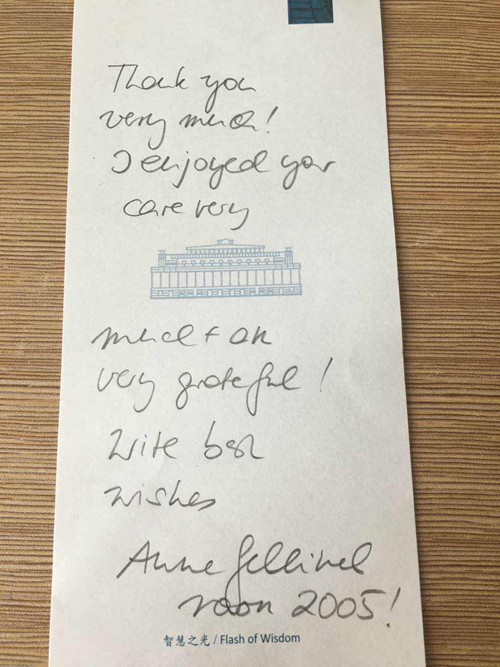 Thank you
very much!
I enjoyed your
care very
much + am
very grateful!
With best
wishes
Anne
room 2005!
智慧之光 / Flash of Wisdom